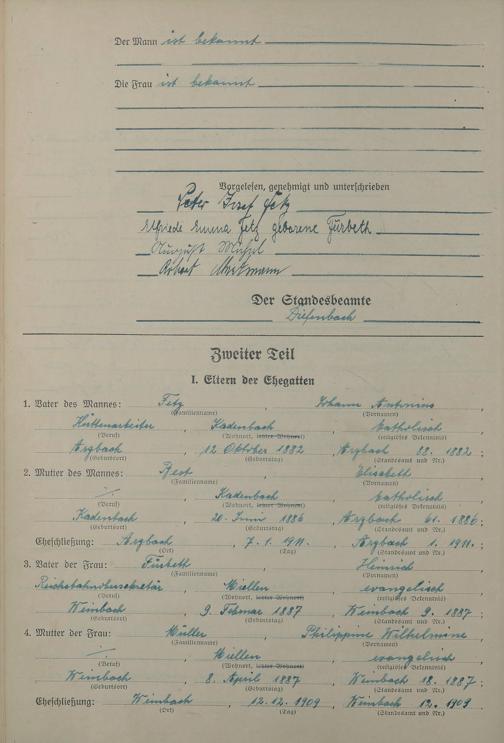 Der Mann ist bekannt
Die Frau ist bekannt
Vorgelesen, genehmigt und unterschrieben
Peter Josef Fetz
Elfriede Emma Fetz geborene Fürbeth
August
Der Standesbeamte
Diefenbach
Zweiter Teil
I. Eltern der Ehegatten
1. Vater des Mannes: Fetz, Johann Antonius,
(Familienname) (Vornamen)
Hüttenarbeiter, Kadenbach, katholisch
(Beruf) (Wohnort, letzter Wohnort) (religiöses Bekenntnis)
Arzbach, 12 Oktober 1882, Arzbach 88. 1882;
(Geburtsort) (Geburtstag) (Standesamt und Nr.)
2. Mutter des Mannes: Elisabeth,
(Familienname) (Vornamen)
Kadenbach, katholisch
(Beruf) (Wohnort, letzter Wohnort) (religiöses Bekenntnis)
Kadenbach, 20. Juni 1886, Arzbach 61. 1886;
(Geburtsort) (Geburtstag) (Standesamt und Nr.)
Eheschließung: Arzbach, 7. 1. 1911., Arzbach 1. 1911.;
(Ort) (Tag) (Standesamt und Nr.)
3. Vater der Frau: Fürbeth, Heinrich,
(Familienname) (Vornamen)
Reichsbahnobersekretär, Miellen, evangelisch
(Beruf) (Wohnort, letzter Wohnort) (religiöses Bekenntnis)
Weinbach, 9. Februar 1887, Weinbach 9. 1887;
(Geburtsort) (Geburtstag) (Standesamt und Nr.)
4. Mutter der Frau: Müller, Philippine Wilhelmine,
(Familienname) (Vornamen)
Miellen, evangelisch
(Beruf) (Wohnort, letzter Wohnort) (religiöses Bekenntnis)
Weinbach, 8. April 1887, Weinbach 18. 1887;
(Geburtsort) (Geburtstag) (Standesamt und Nr.)
Eheschließung: Weinbach, 12. 12. 1909, Weinbach 12. 1909
(Ort) (Tag) (Standesamt und Nr.)